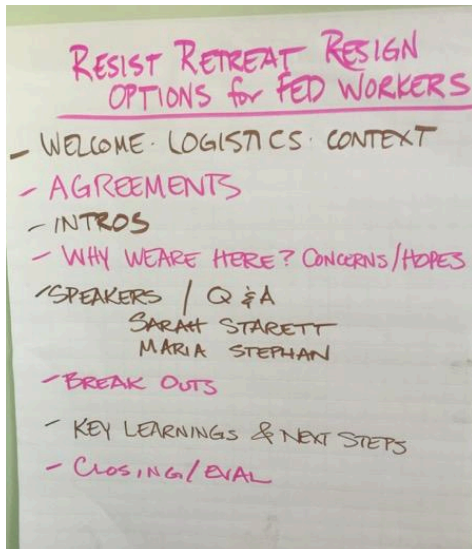 RESIST RETREAT RESIGN
OPTIONS for FED WORKERS
- WELCOME · LOGISTICS · CONTEXT
- AGREEMENTS
- INTROS
- WHY WE ARE HERE? CONCERNS/HOPES
- SPEAKERS / Q & A
SARAH STARETT
MARIA STEPHAN
- BREAK OUTS
- KEY LEARNINGS & NEXT STEPS
- CLOSING/EVAL